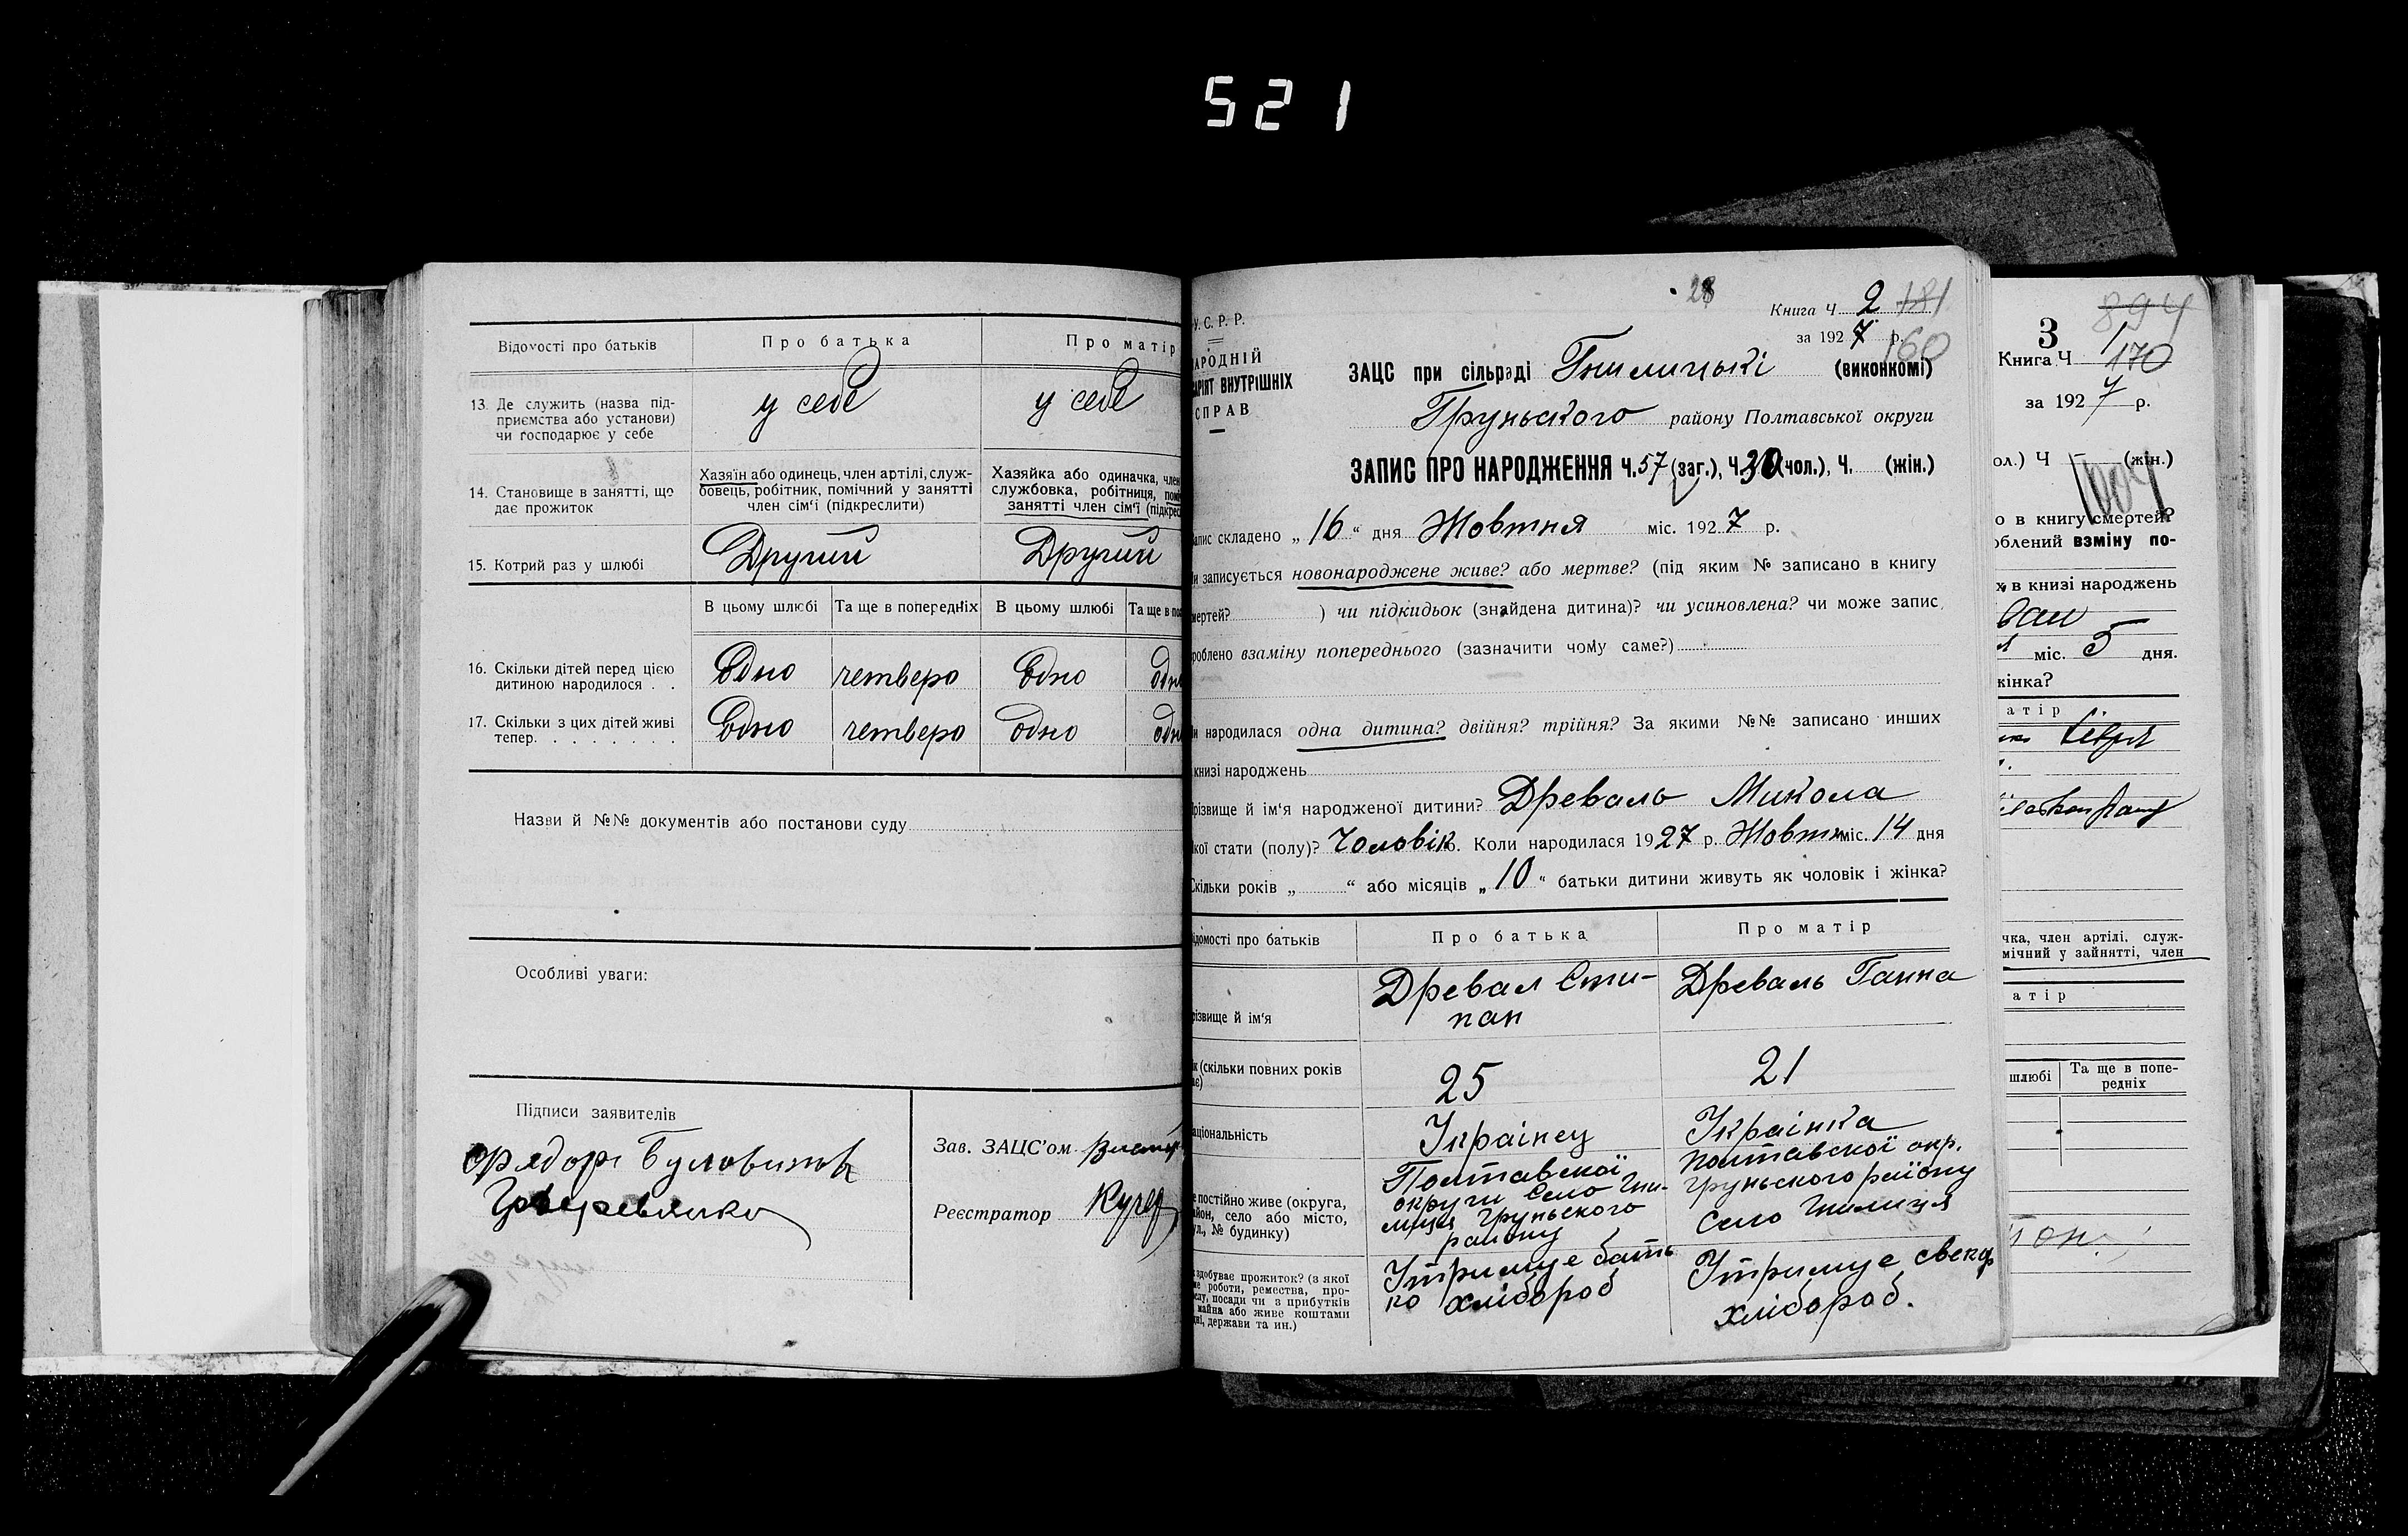 521
Відомості про батьків
Про батька
Про матір
13. Де служить (назва під-
приємства або установи)
чи господарює у себе
у себе
у себе
14. Становище в занятті, що
дає прожиток
Хазяїн або одинець, член артілі, служ-
бовець, робітник, помічний у занятті
член сім'ї (підкреслити)
Хазяйка або одиначка, член
службовка, робітниця,
занятті член сім'ї
15. Котрий раз у шлюбі
Другий
Другий
В цьому шлюбі
Та ще в попередніх
В цьому шлюбі
Та ще в
16. Скільки дітей перед цією
дитиною народилося . .
Одно
четверо
Одно
17. Скільки з цих дітей живі
тепер. . . . . . . .
Одно
четверо
одно
Назви й №№ документів або постанови суду
Особливі уваги:
Підписи заявителів
Зав. ЗАЦС'ом
Реєстратор
28
Книга Ч. 2 181
за 1927 р.
160
У.С.Р.Р.
ВНУТРІШНІХ
СПРАВ
ЗАЦС при сільраді Гнилицькі (виконкомі)
Груньского району Полтавської округи
ЗАПИС ПРО НАРОДЖЕННЯ Ч. 57 (заг.), Ч. 30 (чол.), Ч. (жін.)
складено „16“ дня Жовтня міс. 1927 р.
записується новонароджене живе? або мертве? (під яким № записано в книгу
) чи підкидьок (знайдена дитина)? чи усиновлена? чи може запис
взаміну попереднього (зазначити чому саме?)
народилася одна дитина? двійня? трійня? За якими №№ записано инших
книзі народжень
й ім'я народженої дитини? Древаль Микола
стати (полу)? Чоловік. Коли народилася 1927 р. Жовтн міс. 14 дня
Скільки років „ “ або місяців „10“ батьки дитини живуть як чоловік і жінка?
про батьків
Про батька
Про матір
й ім'я
Древал Сти-
пан
Древаль Ганна
(скільки повних років
25
21
Українец
Українка
постійно живе (округа,
село або місто,
№ будинку)
Полтавскої
округи Село Гни-
лиця Груньского
району
Полтавскої окр.
Груньского району
Село Гнилиця
здобуває прожиток? (з якої
роботи, ремества, про-
посади чи з прибутків
майна або живе коштами
держави та ин.)
Утримує бать
ко хлібороб
Утримує свекор
хлібороб.
3
894
Книга Ч. 1
170
за 1927 р.
Ч — (жін.)
1004
в книгу смертей?
взміну по-
в книзі народжень
міс. 5 дня.
жінка?
член артілі, служ-
у зайнятті, член
шлюбі
Та ще в попе-
редніх